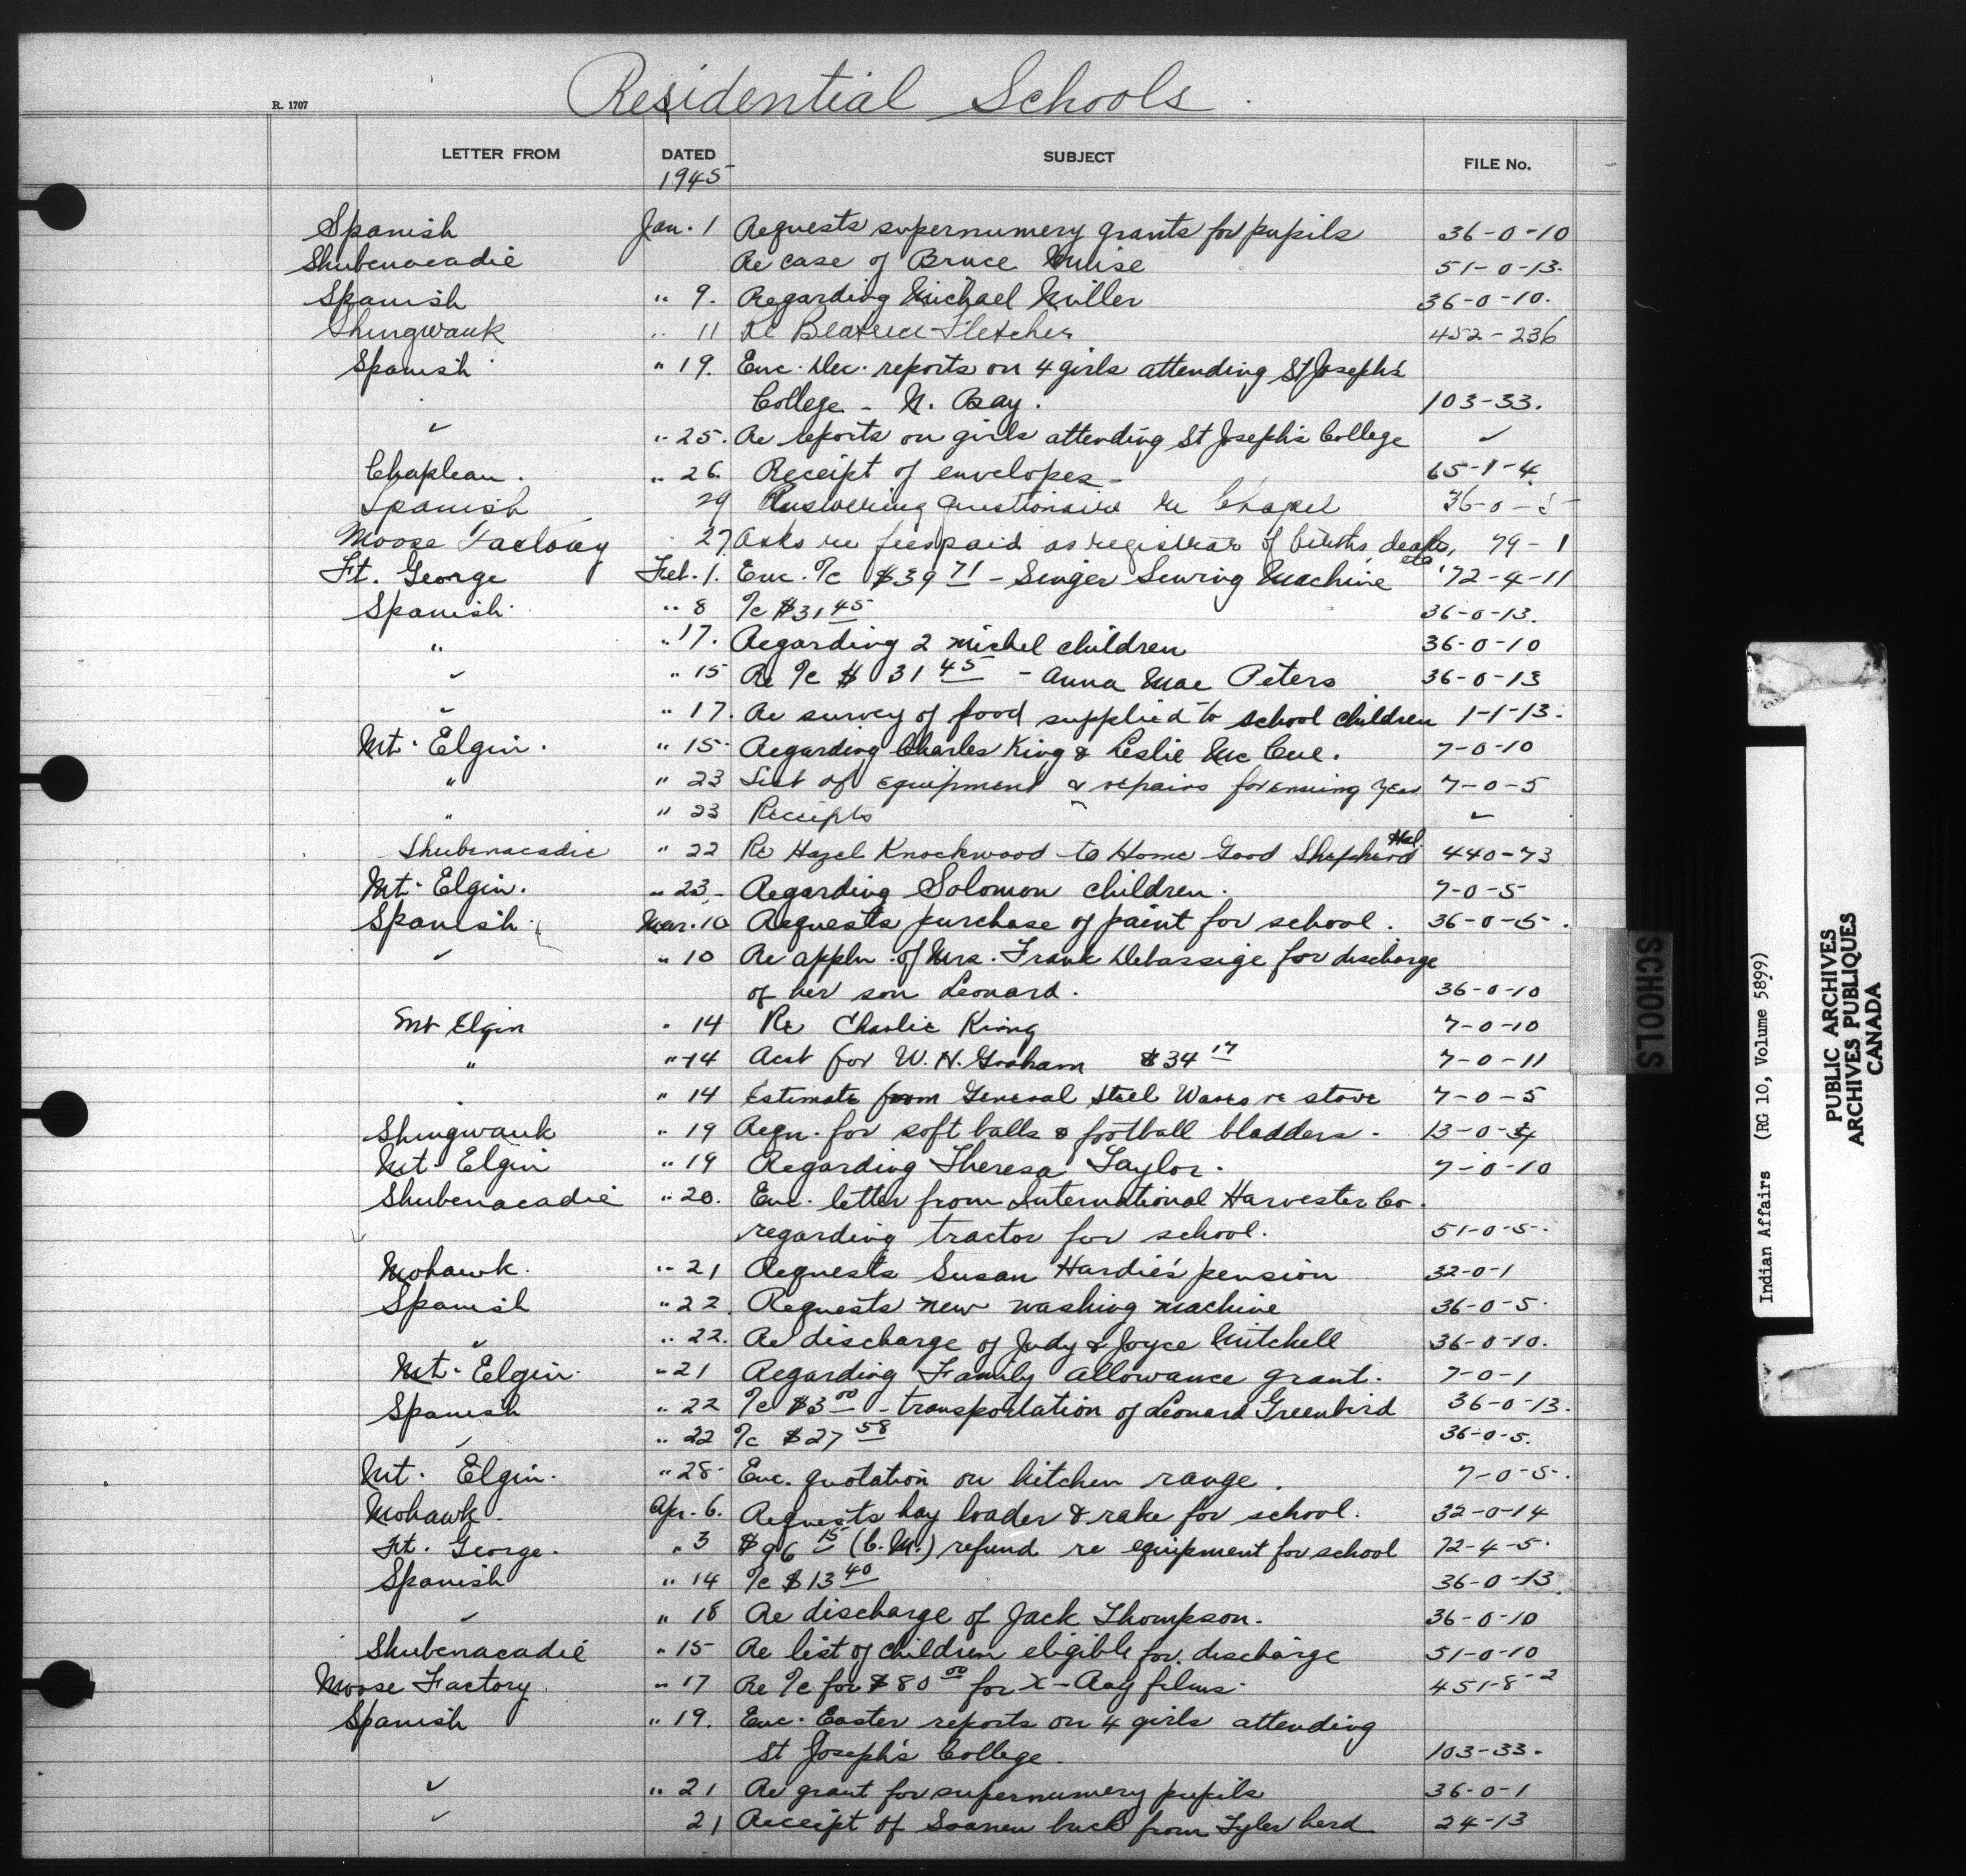 Residential Schools
R. 1707
LETTER FROM DATED SUBJECT FILE No.
1945
Spanish Jan. 1 Requests supernumery grants for pupils 36-0-10
Shubenacadie Re case of Bruce Muise 51-0-13.
Spanish " 9. Regarding Michael Miller 36-0-10.
Shingwauk " 11 Re Beatrice Fletcher 452-236
Spanish " 19. Enc. Dec. reports on 4 girls attending St Joseph's
College - N. Bay. 103-33.
✓ " 25. Re reports on girls attending St Joseph's College ✓
Chapleau. " 26. Receipt of envelopes - 65-1-4
Spanish 29 Answering questionaire re Chapel 36-0-5
Moose Factory 27 Asks re fees paid as registrar of births, deaths, etc. 79-1
Ft. George Feb. 1. Enc. %c $39 71 - Singer Sewing Machine 72-4-11
Spanish " 8 %c $31 45 36-0-13.
" " 17. Regarding 2 Michel children 36-0-10
✓ " 15 Re %c $31 45 - Anna Mae Peters 36-0-13
✓ " 17. Re survey of food supplied to school children 1-1-13.
Mt. Elgin. " 15 Regarding Charles King & Leslie McCue. 7-0-10
" " 23 List of equipment & repairs for ensuing year 7-0-5
" " 23 Receipts ✓
Shubenacadie " 22 Re Hazel Knockwood to Home Good Shepherd Hal. 440-73
Mt. Elgin. " 23. Regarding Solomon children. 7-0-5
Spanish Mar. 10 Requests purchase of paint for school. 36-0-5.
✓ " 10 Re appln. of Mrs. Frank Debassige for discharge
of her son Leonard. 36-0-10
Mt Elgin " 14 Re Charlie King 7-0-10
" " 14 Acct for W. H. Graham $34 17 7-0-11
" " 14 Estimate from General Steel Wares re stove 7-0-5
Shingwauk " 19 Reqn. for soft balls & football bladders. 13-0-4
Mt. Elgin " 19 Regarding Theresa Taylor. 7-0-10
Shubenacadie " 20. Enc. letter from International Harvester Co.
regarding tractor for school. 51-0-5.
Mohawk. " 21 Requests Susan Hardie's pension 32-0-1
Spanish " 22. Requests new washing machine 36-0-5.
✓ " 22. Re discharge of Judy & Joyce Mitchell 36-0-10.
Mt. Elgin. " 21 Regarding Family Allowance grant. 7-0-1
Spanish " 22 %c $3 00 - transportation of Leonard Greenbird 36-0-13.
✓ " 22 %c $27 58 36-0-5.
Mt. Elgin. " 28 Enc. quotation on kitchen range. 7-0-5.
Mohawk. Apr. 6. Requests hay loader & rake for school. 32-0-14
Ft. George. " 3 $96 15 (C.M.) refund re equipment for school 72-4-5.
Spanish " 14 %c $13 40 36-0-13.
✓ " 18 Re discharge of Jack Thompson. 36-0-10
Shubenacadie " 15 Re list of children eligible for discharge 51-0-10
Moose Factory " 17 Re %c for $80 00 for X-Ray films. 451-8-2
Spanish " 19. Enc. Easter reports on 4 girls attending
St Joseph's College. 103-33.
✓ " 21 Re grant for supernumery pupils 36-0-1
✓ 21 Receipt of Saanen buck from Tyler herd 24-13
SCHOOLS
Indian Affairs (RG 10, Volume 5899)
PUBLIC ARCHIVES
ARCHIVES PUBLIQUES
CANADA